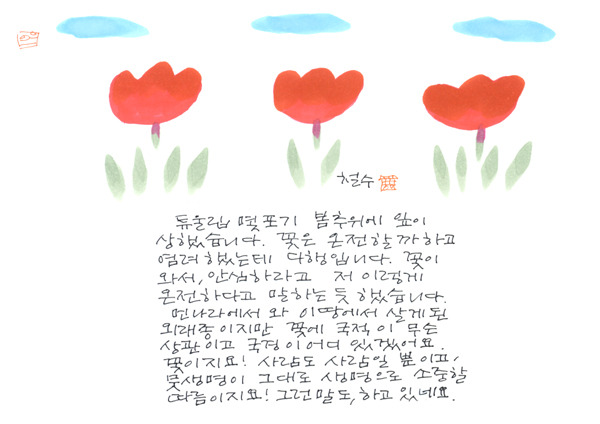 철수
튜울립 몇포기 봄추위에 잎이
상했습니다. 꽃은 온전할까하고
염려했는데 다행입니다. 꽃이
와서, 안심하라고 저 이렇게
온전하다고 말하는 듯 했습니다.
먼나라에서 와 이땅에서 살게된
외래종이지만 꽃에 국적이 무슨
상관이고 국경이어디 있겠어요.
꽃이지요! 사람도 사람일 뿐이고,
뭇생명이 그대로 생명으로 소중할
따름이지요! 그런말도, 하고 있네요.